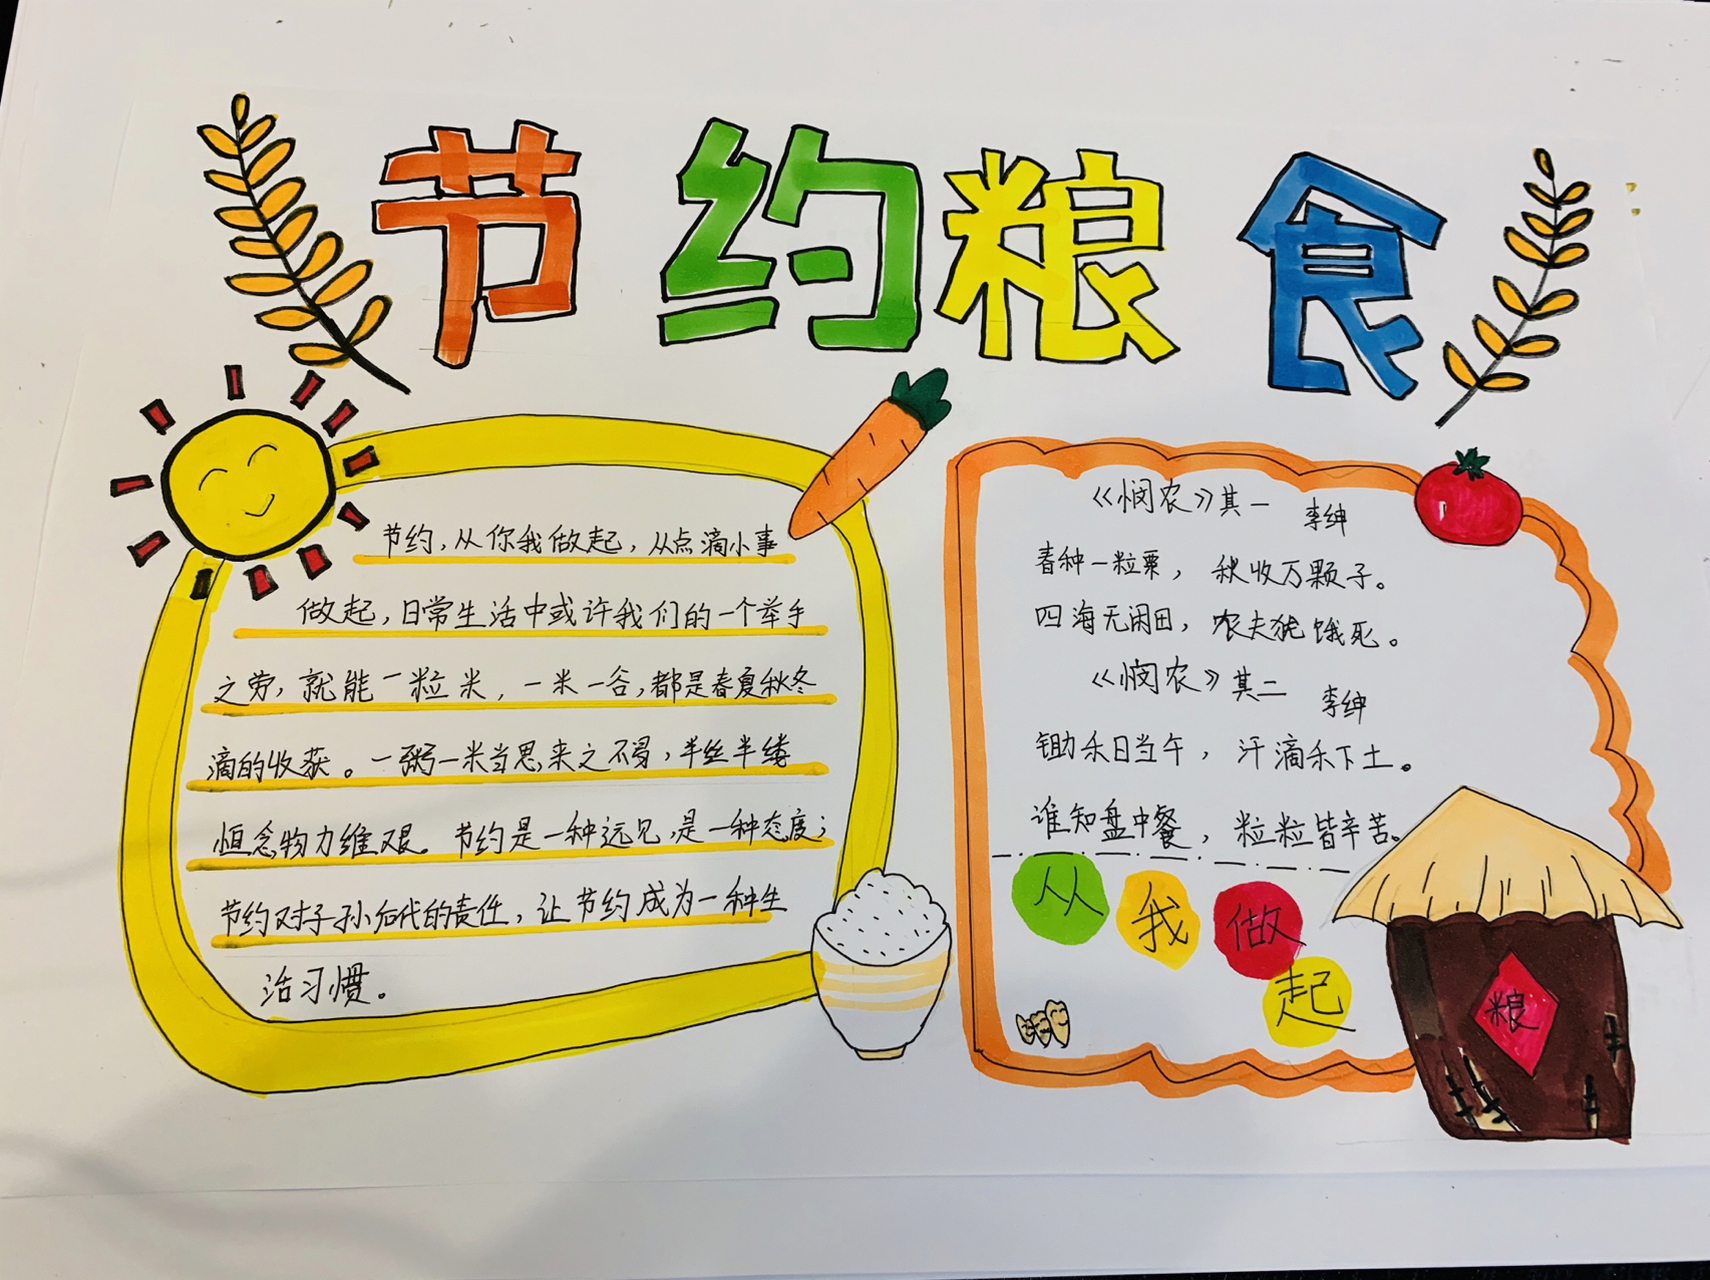 节约粮食
节约，从你我做起，从点滴小事
做起，日常生活中或许我们的一个举手
之劳，就能一粒米，一米一谷，都是春夏秋冬
滴的收获。一粥一米当思来之不易，半丝半缕
恒念物力维艰。节约是一种远见，是一种态度；
节约对子孙后代的责任，让节约成为一种生
活习惯。
《悯农》其一 李绅
春种一粒粟，秋收万颗子。
四海无闲田，农夫犹饿死。
《悯农》其二 李绅
锄禾日当午，汗滴禾下土。
谁知盘中餐，粒粒皆辛苦。
从我做起
粮